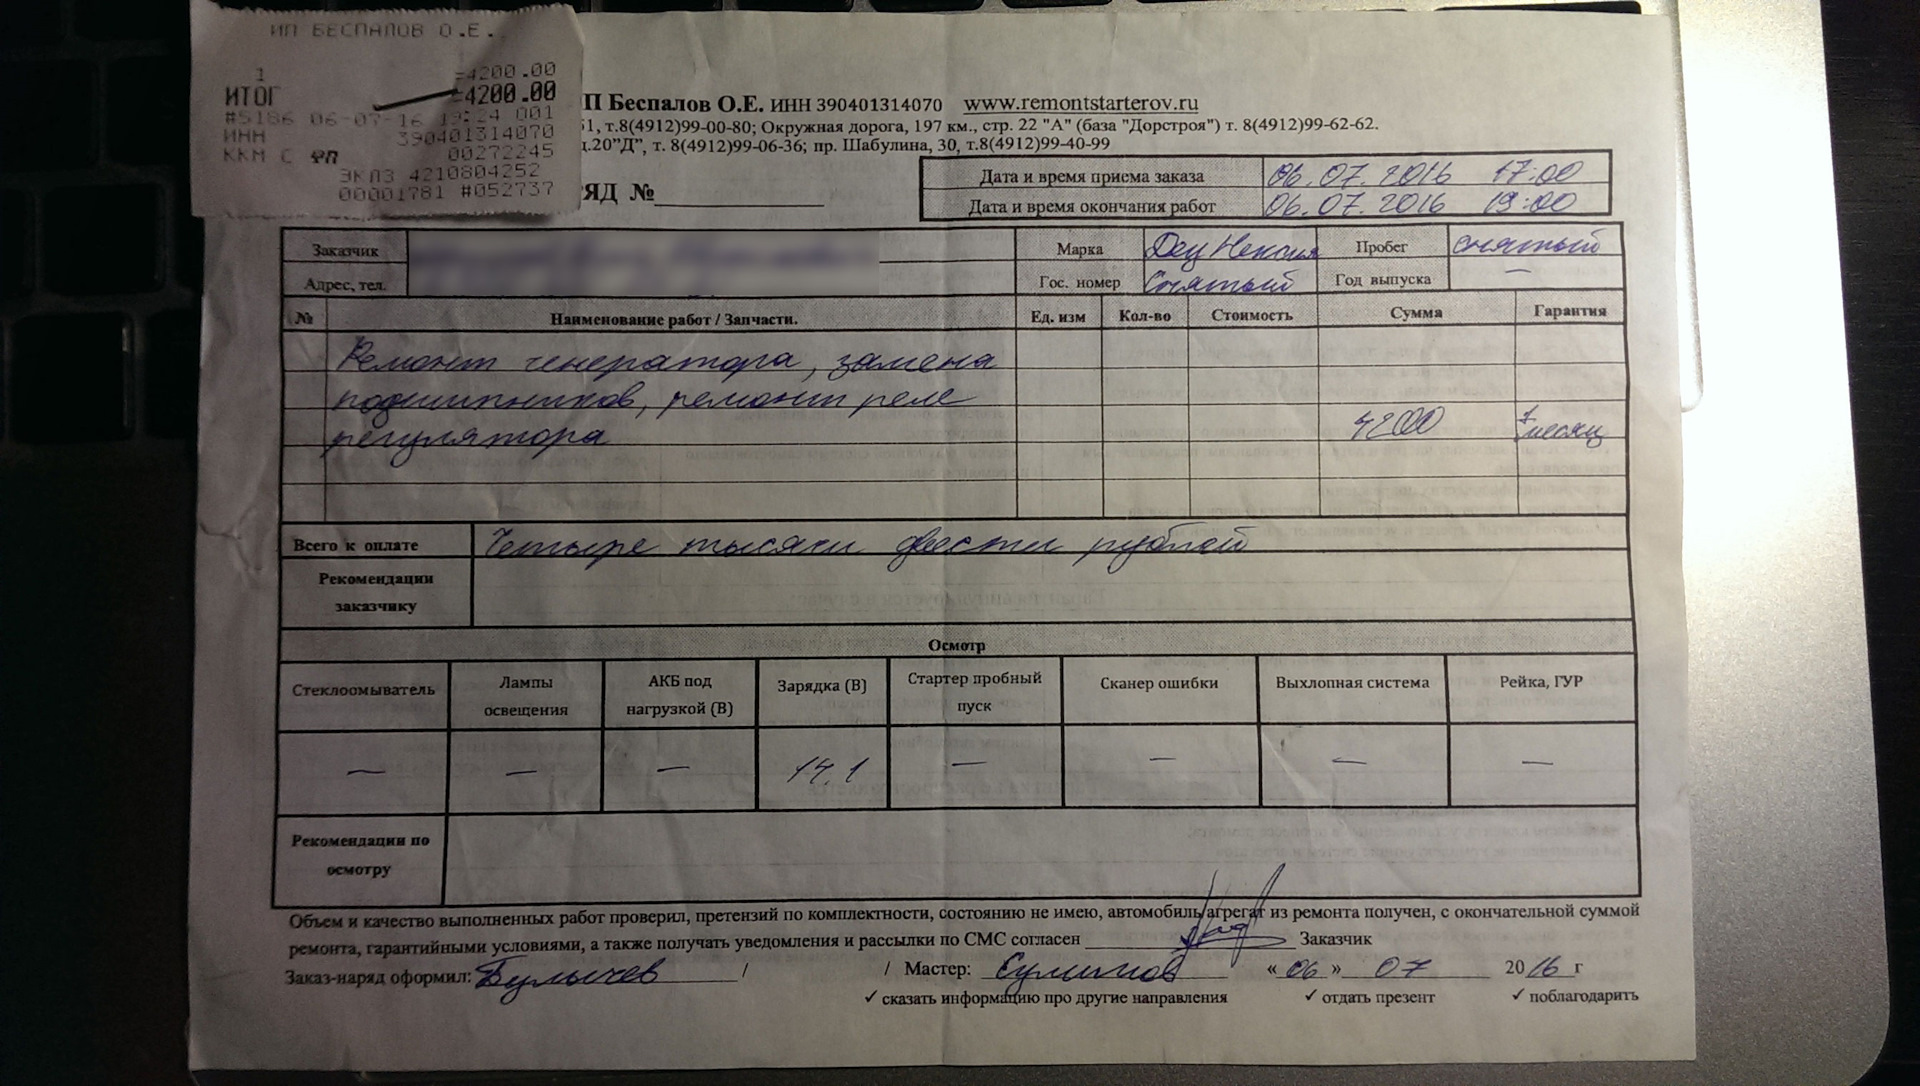 ИП БЕСПАЛОВ О.Е.
1 =4200.00
ИТОГ =4200.00
#5186 06-07-16 19:24 001
ИНН 390401314070
ККМ С ФП 00272245
ЭКЛЗ 4210804252
00001781 #052737
П Беспалов О.Е. ИНН 390401314070 www.remontstarterov.ru
51, т.8(4912)99-00-80; Окружная дорога, 197 км., стр. 22 "А" (база "Дорстроя") т. 8(4912)99-62-62.
д.20"Д", т. 8(4912)99-06-36; пр. Шабулина, 30, т.8(4912)99-40-99
РЯД №
Дата и время приема заказа 06.07.2016 17:00
Дата и время окончания работ 06.07.2016 19:00
Заказчик Марка Деу Нексия Пробег снятый
Адрес, тел. Гос. номер Снятый Год выпуска —
№ Наименование работ / Запчасти. Ед. изм Кол-во Стоимость Сумма Гарантия
Ремонт генератора, замена
подшипников, ремонт реле
регулятора 4200 1 месяц
Всего к оплате Четыре тысячи двести рублей
Рекомендации
заказчику
Осмотр
Стеклоомыватель Лампы освещения АКБ под нагрузкой (В) Зарядка (В) Стартер пробный пуск Сканер ошибки Выхлопная система Рейка, ГУР
— — — 14,1 — — — —
Рекомендации по
осмотру
Объем и качество выполненных работ проверил, претензий по комплектности, состоянию не имею, автомобиль/агрегат из ремонта получен, с окончательной суммой
ремонта, гарантийными условиями, а также получать уведомления и рассылки по СМС согласен Заказчик
Заказ-наряд оформил: Булычев / / Мастер: Сулимов « 06 » 07 2016 г
✓ сказать информацию про другие направления ✓ отдать презент ✓ поблагодарить